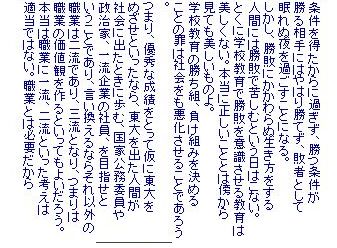 条件を得たからに過ぎず、勝つ条件が
勝る相手にはやはり勝てず、敗者として
眠れぬ夜を過ごすことになる。
しかし、勝敗にかかわらぬ生き方をする
人間には勝敗で苦しむという日はこない。
とくに学校教育で勝敗を意識させる教育は
美しくない。本当に正しいこととは傍から
見ても美しいものよ。
学校教育の勝ち組、負け組みを決める
ことの罪は社会をも悪化させることであろう
つまり、優秀な成績をとって仮に東大を
めざせといったなら、東大を出た人間が
社会に出たときに歩む、国家公務委員や
政治家、一流企業の社員、を目指せと
いうことであり、言い換えるならそれ以外の
職業は二流であり、三流となり、つまりは
職業の価値観を作るといってもよいだろう。
本当は職業に一流、二流といった考えは
適当ではない。職業とは必要だから